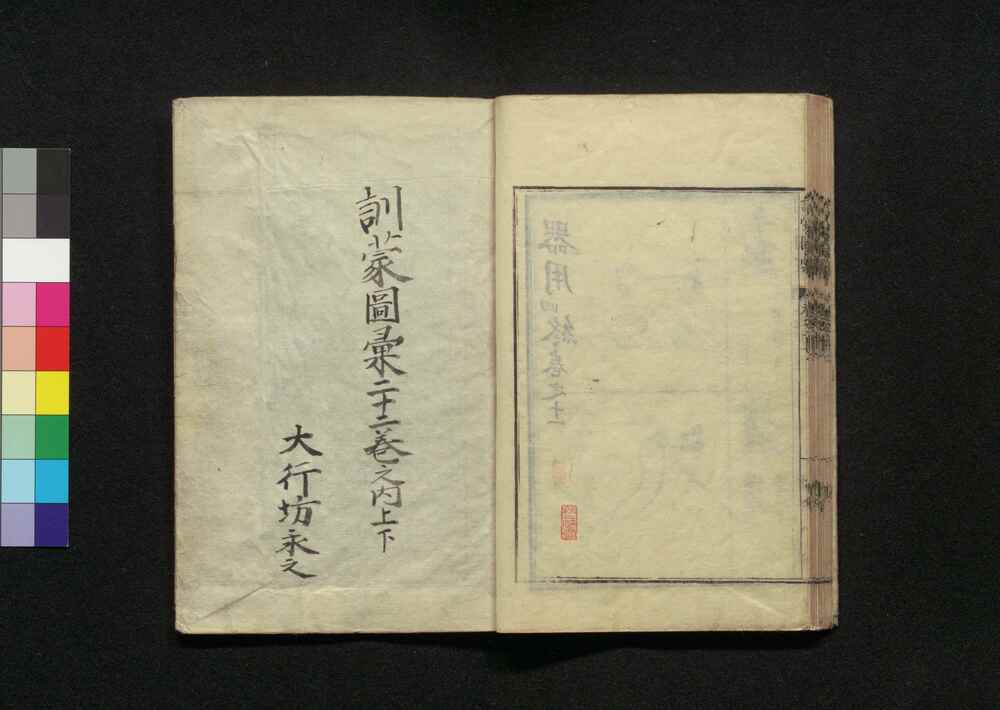 器用四終卷之十一
訓蒙圖彙二十二巻之内上下
大行坊永之